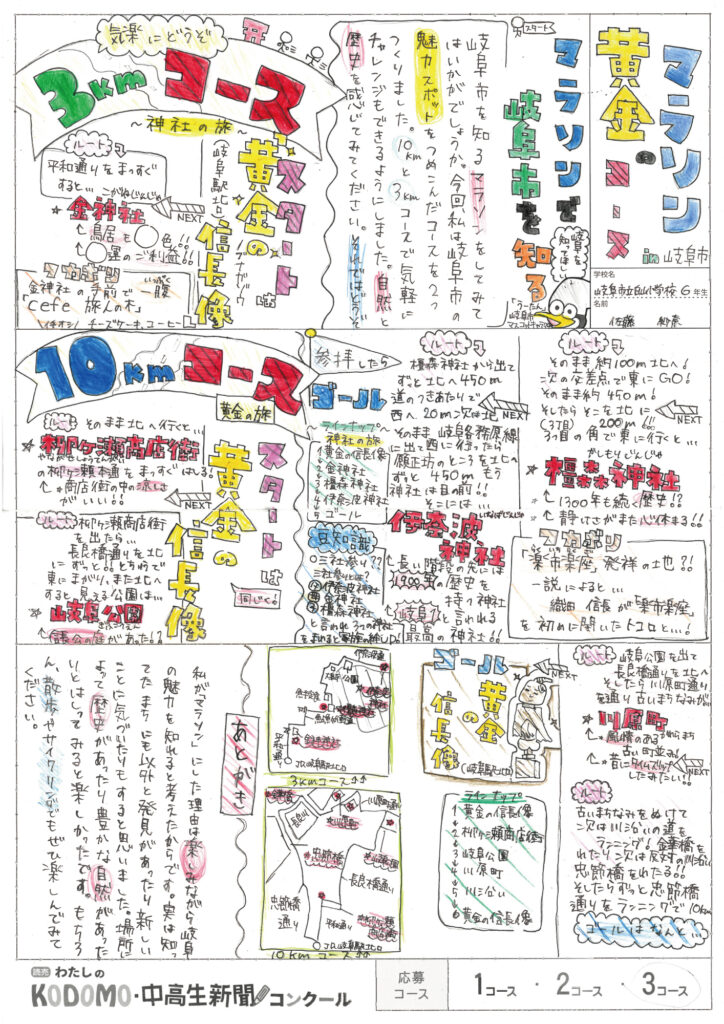 マラソン
黄金の
コース
in 岐阜市
学校名
6年生
名前
佐藤
スタート
マラソンで
岐阜市を
知る
岐阜を
知ってほしい
うーたん
岐阜市
マスコットキャラクター
岐阜市を知るマラソンをしてみて
はいかがでしょうか。今回私は岐阜市の
魅力スポットをつめこんだコースを2つ
つくりました。10kmと3kmコースで気軽に
チャレンジもできるようにしました。自然と
歴史を感じてみてください。それではどうぞ
気楽にどうぞ
3kmコース
~神社の旅~
スタートは
黄金の
信長像
(岐阜駅北口)
ルート
平和通りをまっすぐ
すると…
こがねじんじゃ
金神社
NEXT
↑鳥居も○色!!
↑○運のご利益!!
金神社の手前で一腹
いっぷく
「cefe 旅人の木」
イチオシ♪ チーズケーキ、コーヒー
ルート
そのまま約100m北へ!
次の交差点で東にGO!
そのまま約450m!
そしたらそこを北に
(3丁目) 200m!!
3つ目の角で東に行くと…
NEXT
かしもりじんじゃ
橿森神社
↑1300年も続く歴史!?
↑静けさがまた心休まる!!
「楽市楽座」発祥の土地?!
一説によると…
織田信長が「楽市楽座」
を初めに開いたトコロと…!
ルート
橿森神社から出て
ずっと北へ450m
道のつきあたりで
西へ20m次は北
NEXT
そのまま岐阜各務原線
に出て西に行ったら
願正坊のところを北へ
ずっと450m もう
神社は目の前!!
そこには…
いなばじんじゃ
伊奈波
神社
↑長い階段の先には
1900年の歴史を
持つ神社
↑岐阜1と言われる
最高の神社!!
参拝したら
ゴール
ラインナップ
神社の旅
1黄金の信長像
2金神社
3橿森神社
4伊奈波神社
5ゴール
豆知識
○三社参り??
三社参りとは?
伊奈波神社
金神社
橿森神社
と言われる3つの神社
10kmコース
黄金の旅
スタートは
黄金の
信長像
同じく。
ルート
そのまま北へ行くと…
やながせしょうてんがい
柳ケ瀬商店街
の柳ケ瀬本通をまっすぐはしる!
↑*商店街の中の涼しさ
がいい!!
NEXT
ルート
柳ケ瀬商店街
を出たら…
長良橋通りを北
にずっと!!とちゅうで
東にまがり、また北へ
すると見える公園は…
NEXT
岐阜公園
ぎふこうえん
ルート
岐阜公園を出て
長良橋通りを北へ
そしたら川原町通り
を通り古いまちなみが…
NEXT
川原町
かわらまち
↑風情のある
古い町並み
↑昔にタイムスリップ
したみたい!!
ルート
古いまちなみをぬけて
次は川沿いの道を
ランニング!金華橋を
わたり次は反対の川沿い
忠節橋をわたる!!
そしたらずっと忠節橋
通りをランニングで10km
ゴールはなんと…
NEXT
ゴール
黄金
の
信長像
(岐阜駅北口)
ラインナップ
1黄金の信長像
2柳ケ瀬商店街
3岐阜公園
4川原町
5川沿い
6黄金の信長像
伊奈波通
平和通り
JR岐阜駅北口
3kmコース
金華橋
長良川
川原町
忠節橋
岐阜公園
長良橋通り
忠節橋
通り
平和通り
柳ケ瀬
商店街
JR岐阜駅北口
10kmコース
あとがき
私が「マラソン」にした理由は楽しみながら岐阜
の魅力を知れると考えたからです。実は知っ
てたまちにも以外と発見があったり新しい
ことに気づいたりもすると思いました。場所に
よって歴史があったり豊かな自然があった
りとはしってみると楽しかったです。もちろ
ん、散歩やサイクリングでもぜひ楽しんでみて
ください。
読売 わたしの
KODOMO・中高生新聞コンクール
応募
コース
1コース ・ 2コース ・ 3コース